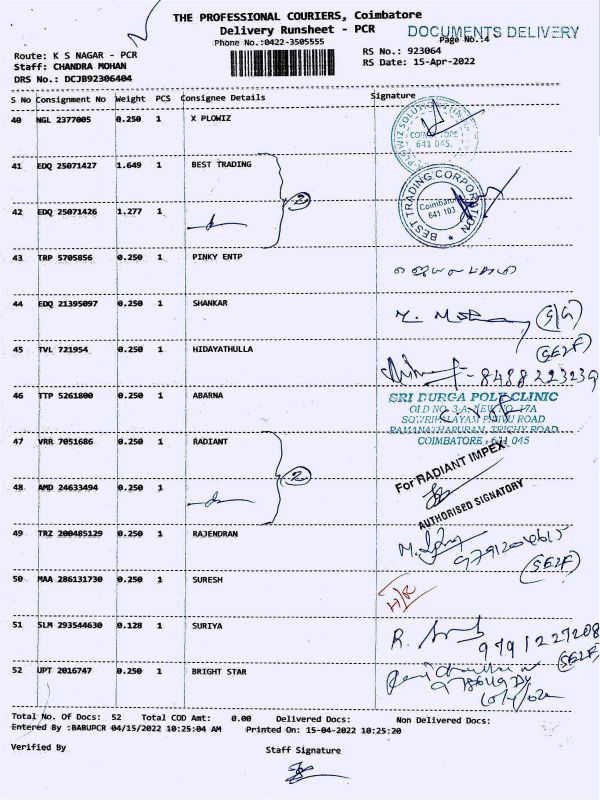 THE PROFESSIONAL COURIERS, Coimbatore
Delivery Runsheet - PCR
DOCUMENTS DELIVERY
Phone No.:0422-3505555
Page No.:4
Route: K S NAGAR - PCR
RS No.: 923064
Staff: CHANDRA MOHAN
RS Date: 15-Apr-2022
DRS No.: DCJB92306404
S No Consignment No Weight PCS Consignee Details Signature
40 NGL 2377005 0.250 1 X PLOWIZ
COIMBATORE
641 045.
41 EDQ 25071427 1.649 1 BEST TRADING
2
BEST TRADING CORPORATION
Coimbatore
641 103.
42 EDQ 25071426 1.277 1
43 TRP 5705856 0.250 1 PINKY ENTP
44 EDQ 21395097 0.250 1 SHANKAR
S/G
45 TVL 721954 0.250 1 HIDAYATHULLA
SELF
46 TTP 5261800 0.250 1 ABARNA
SRI DURGA POLY CLINIC
OLD NO. 3-A, NEW NO. 17A
RAMANATHAPURAM, TRICHY ROAD
COIMBATORE - 641 045
47 VRR 7051686 0.250 1 RADIANT
2
For RADIANT IMPEX
48 AMD 24633494 0.250 1
AUTHORISED SIGNATORY
49 TRZ 200485129 0.250 1 RAJENDRAN
SELF
50 MAA 286131730 0.250 1 SURESH
H/R
51 SLM 293544630 0.128 1 SURIYA
9791227208
SELF
52 UPT 2016747 0.250 1 BRIGHT STAR
Total No. Of Docs: 52 Total COD Amt: 0.00 Delivered Docs: Non Delivered Docs:
Entered By :BABUPCR 04/15/2022 10:25:04 AM Printed On: 15-04-2022 10:25:20
Verified By
Staff Signature